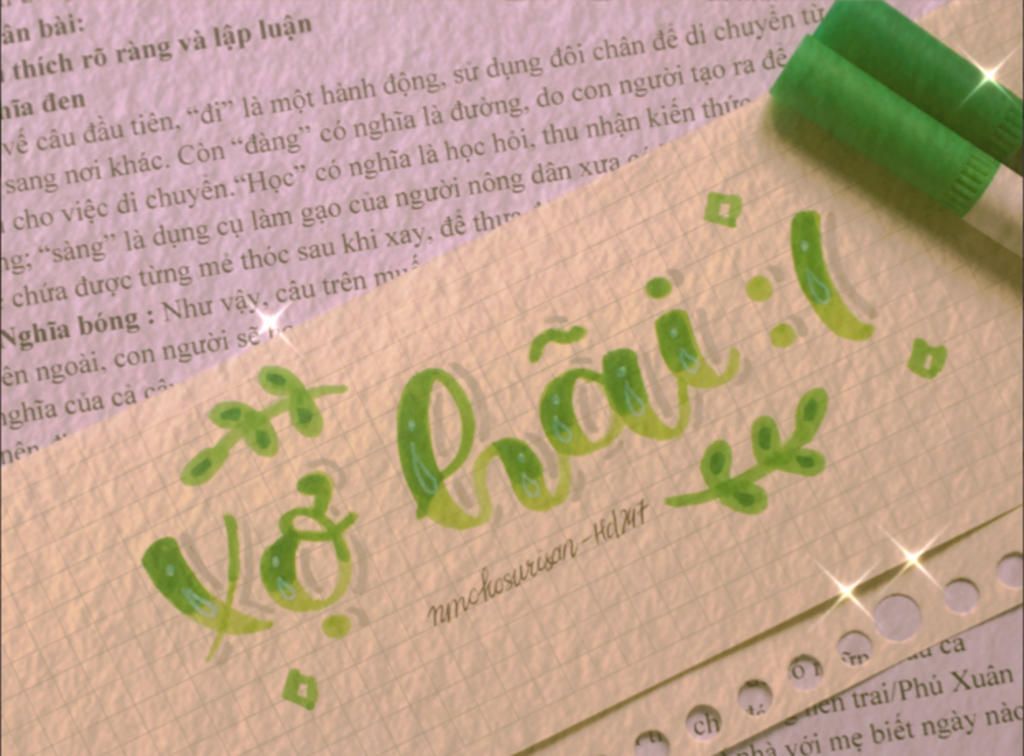 ân bài:
thích rõ ràng và lập luận
hĩa đen
vế câu đầu tiên, “đi” là một hành động, sử dụng đôi chân để di chuyển từ
sang nơi khác. Còn “đàng” có nghĩa là đường, do con người tạo ra để
cho việc di chuyển.“Học” có nghĩa là học hỏi, thu nhận kiến thức
ng; “sàng” là dụng cụ làm gạo của người nông dân xưa
chứa được từng mẻ thóc sau khi xay, để
Nghĩa bóng : Như vậy, câu trên
ên ngoài, con người sẽ
nghĩa của cả
nên
Xợ hãi :(
nmchosurisan-Hd247
ch
nên trai/Phủ Xuân
nhà với mẹ biết ngày nào